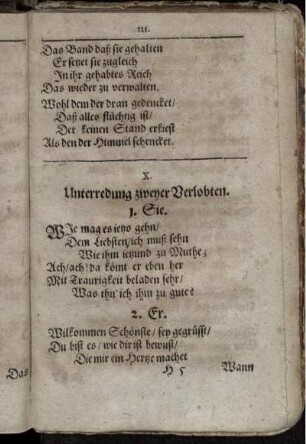 III.
Das Band daß sie gehalten
Er setzet sie zugleich
In ihr gehabtes Reich
Das wieder zu verwalten.
Wohl dem der dran gedencket/
Daß alles flüchtig ist/
Der keinen Stand erkiest
Als den der Himmel schencket.
X.
Unterredung zweyer Verlobten.
1. Sie.
WIe mag es ietzo gehn/
Dem Liebsten/ich muß sehn
Wie ihm ietzund zu Muthe;
Ach/ach! da kömt er eben her
Mit Traurigkeit beladen sehr/
Was thu' ich ihm zu gute?
2. Er.
Wilkommen Schönste/ sey gegrüsst/
Du bist es/ wie dir ist bewust/
Die mir ein Hertze machet
H 5 Wann
Das